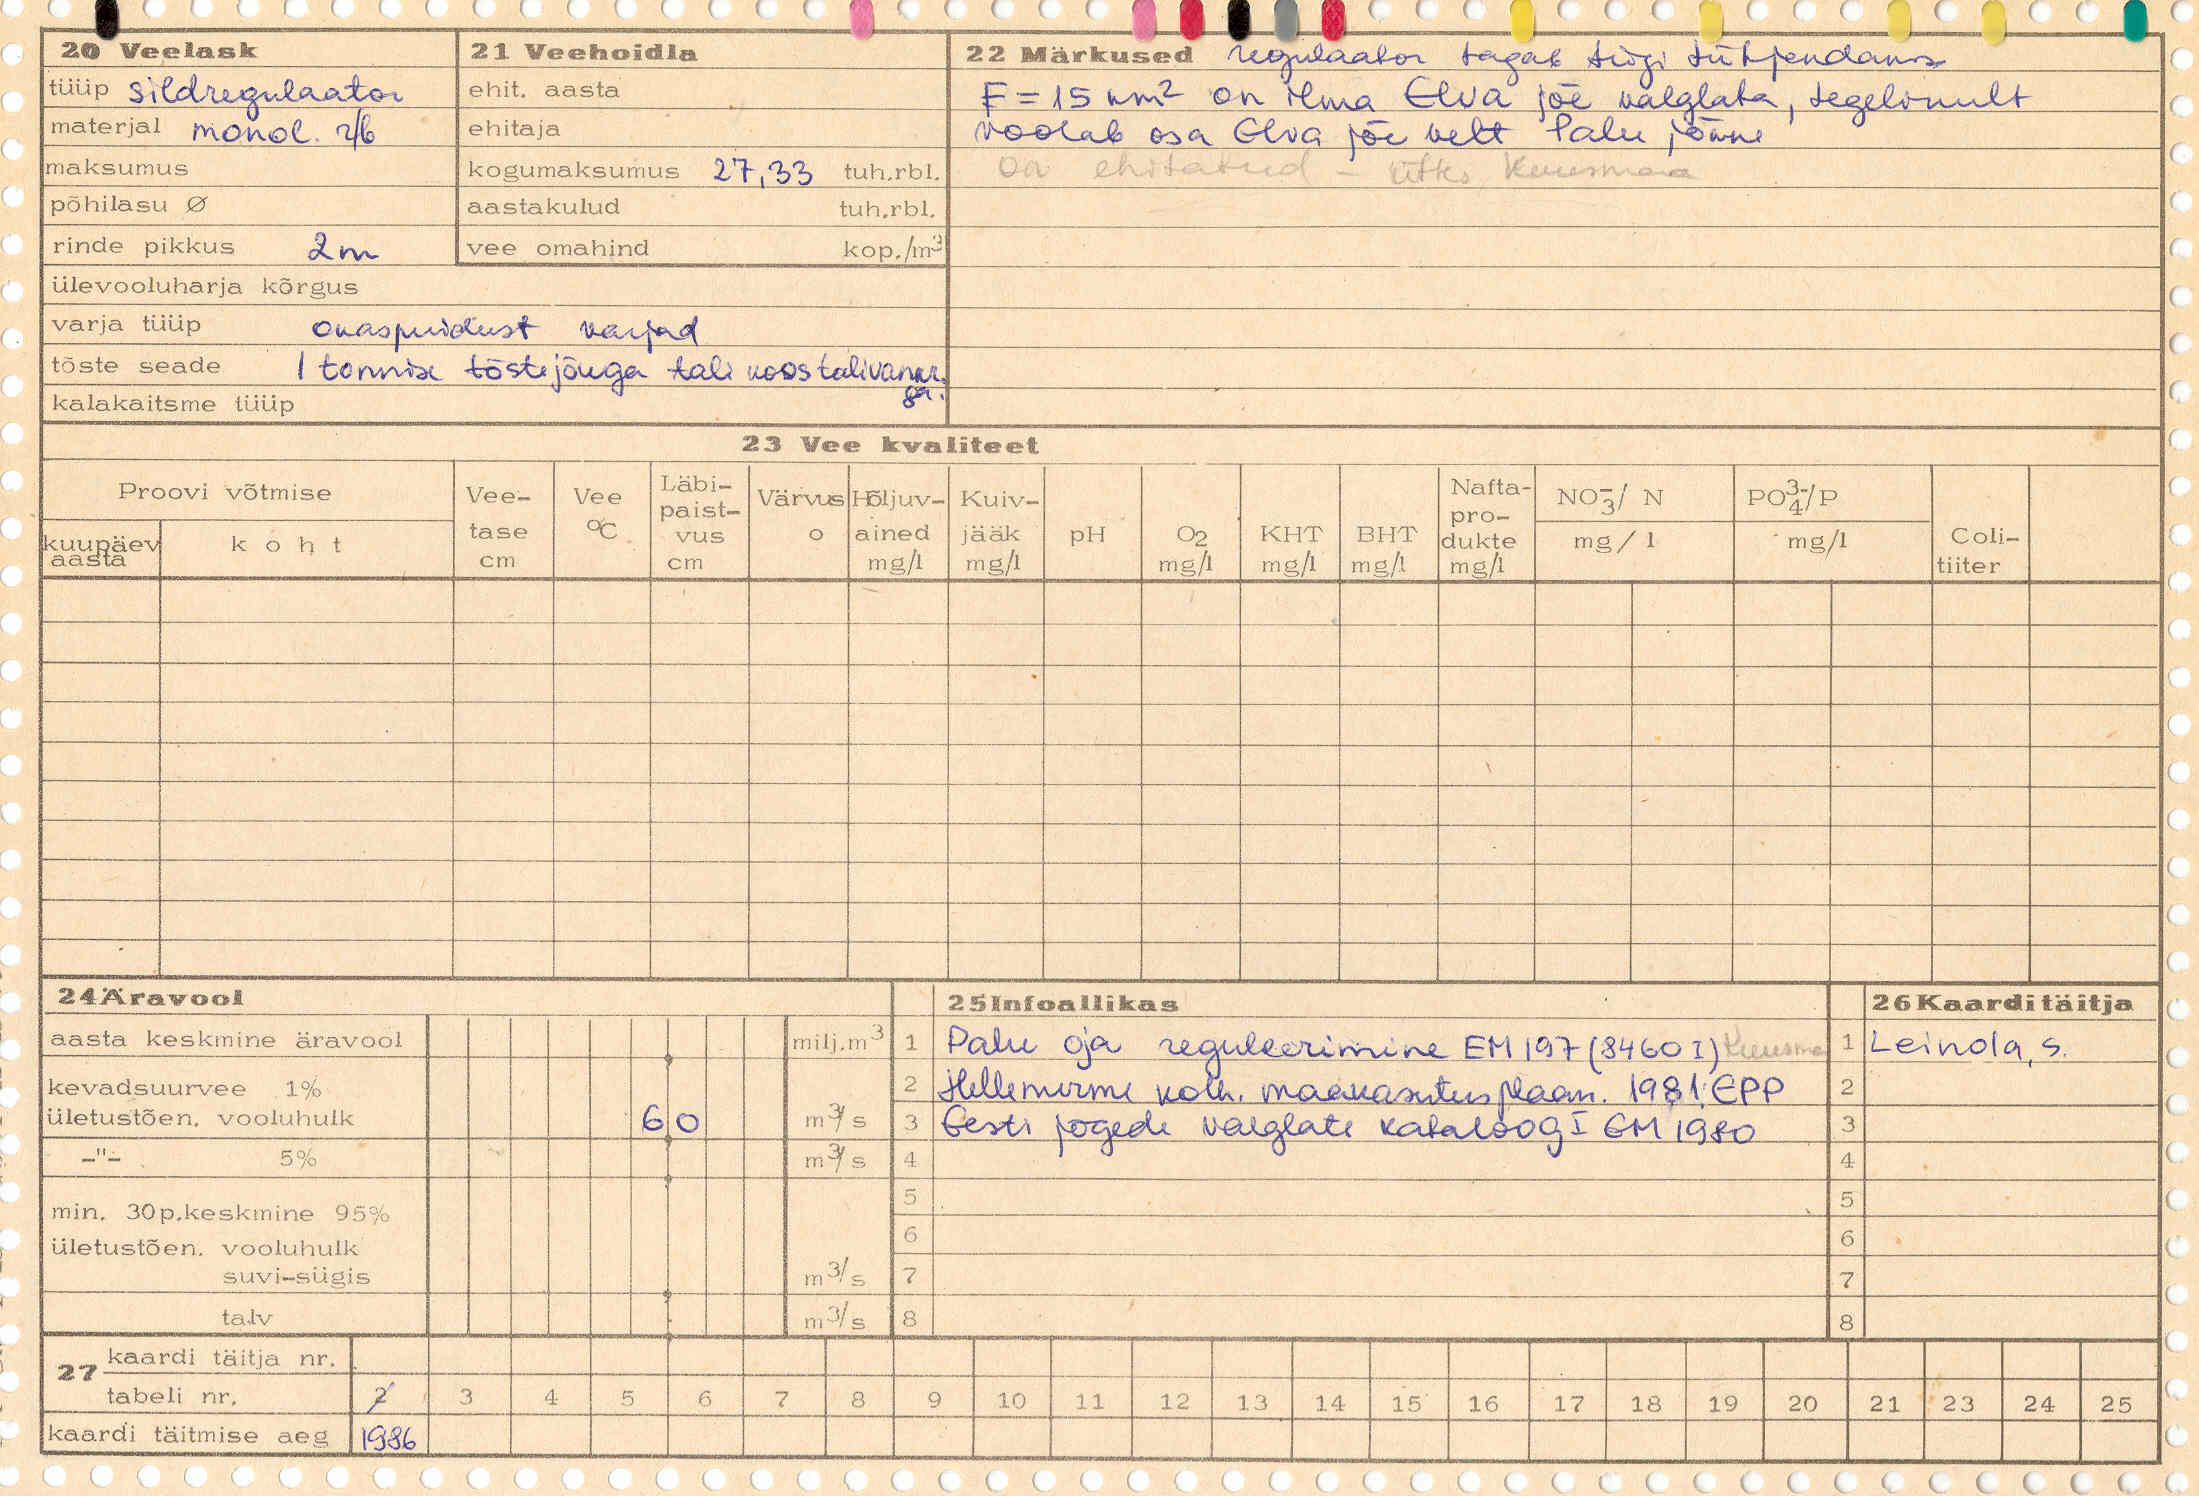 20 Veelask
tüüp sildregulaator
materjal monol. r/b
maksumus
põhilasu Ø
rinde pikkus 2m
ülevooluharja kõrgus
varja tüüp okaspuidust varjad
tõste seade 1 tonnise tõstejõuga tali koos talivankr.
ga.
kalakaitsme tüüp
21 Veehoidla
ehit. aasta
ehitaja
kogumaksumus 27,33 tuh.rbl.
aastakulud tuh.rbl.
vee omahind kop./m³
22 Märkused regulaator tagab tiigi tühjendamise
F = 15 km² on ilma Elva jõe valglata, tegelikult
voolab osa Elva jõe vett Palu jõkke
on ehitatud - ütles Kuusmaa
23 Vee kvaliteet
Proovi võtmise
kuupäev aasta
koht
Vee-tase cm
Vee °C
Läbi-paist-vus cm
Värvus o
Hõljuv-ained mg/l
Kuiv-jääk mg/l
pH
O2 mg/l
KHT mg/l
BHT mg/l
Nafta-pro-dukte mg/l
NO3⁻/ N mg/l
PO4³⁻/P mg/l
Coli-tiiter
24 Äravool
aasta keskmine äravool milj.m³
kevadsuurvee 1%
ületustõen. vooluhulk 60 m³/s
-"- 5% m³/s
min. 30p.keskmine 95%
ületustõen. vooluhulk
suvi-sügis m³/s
talv m³/s
25 Infoallikas
1 Palu oja reguleerimine EM 197 (8460 I) Kuusma
2 Hellenurme kolh. maakasutusplaan. 1981. EPP
3 Eesti jõgede valglate kataloog I EM 1980
4
5
6
7
8
26 Kaarditäitja
1 Leinola, s.
2
3
4
5
6
7
8
27 kaardi täitja nr.
tabeli nr. 2 3 4 5 6 7 8 9 10 11 12 13 14 15 16 17 18 19 20 21 23 24 25
kaardi täitmise aeg 1986